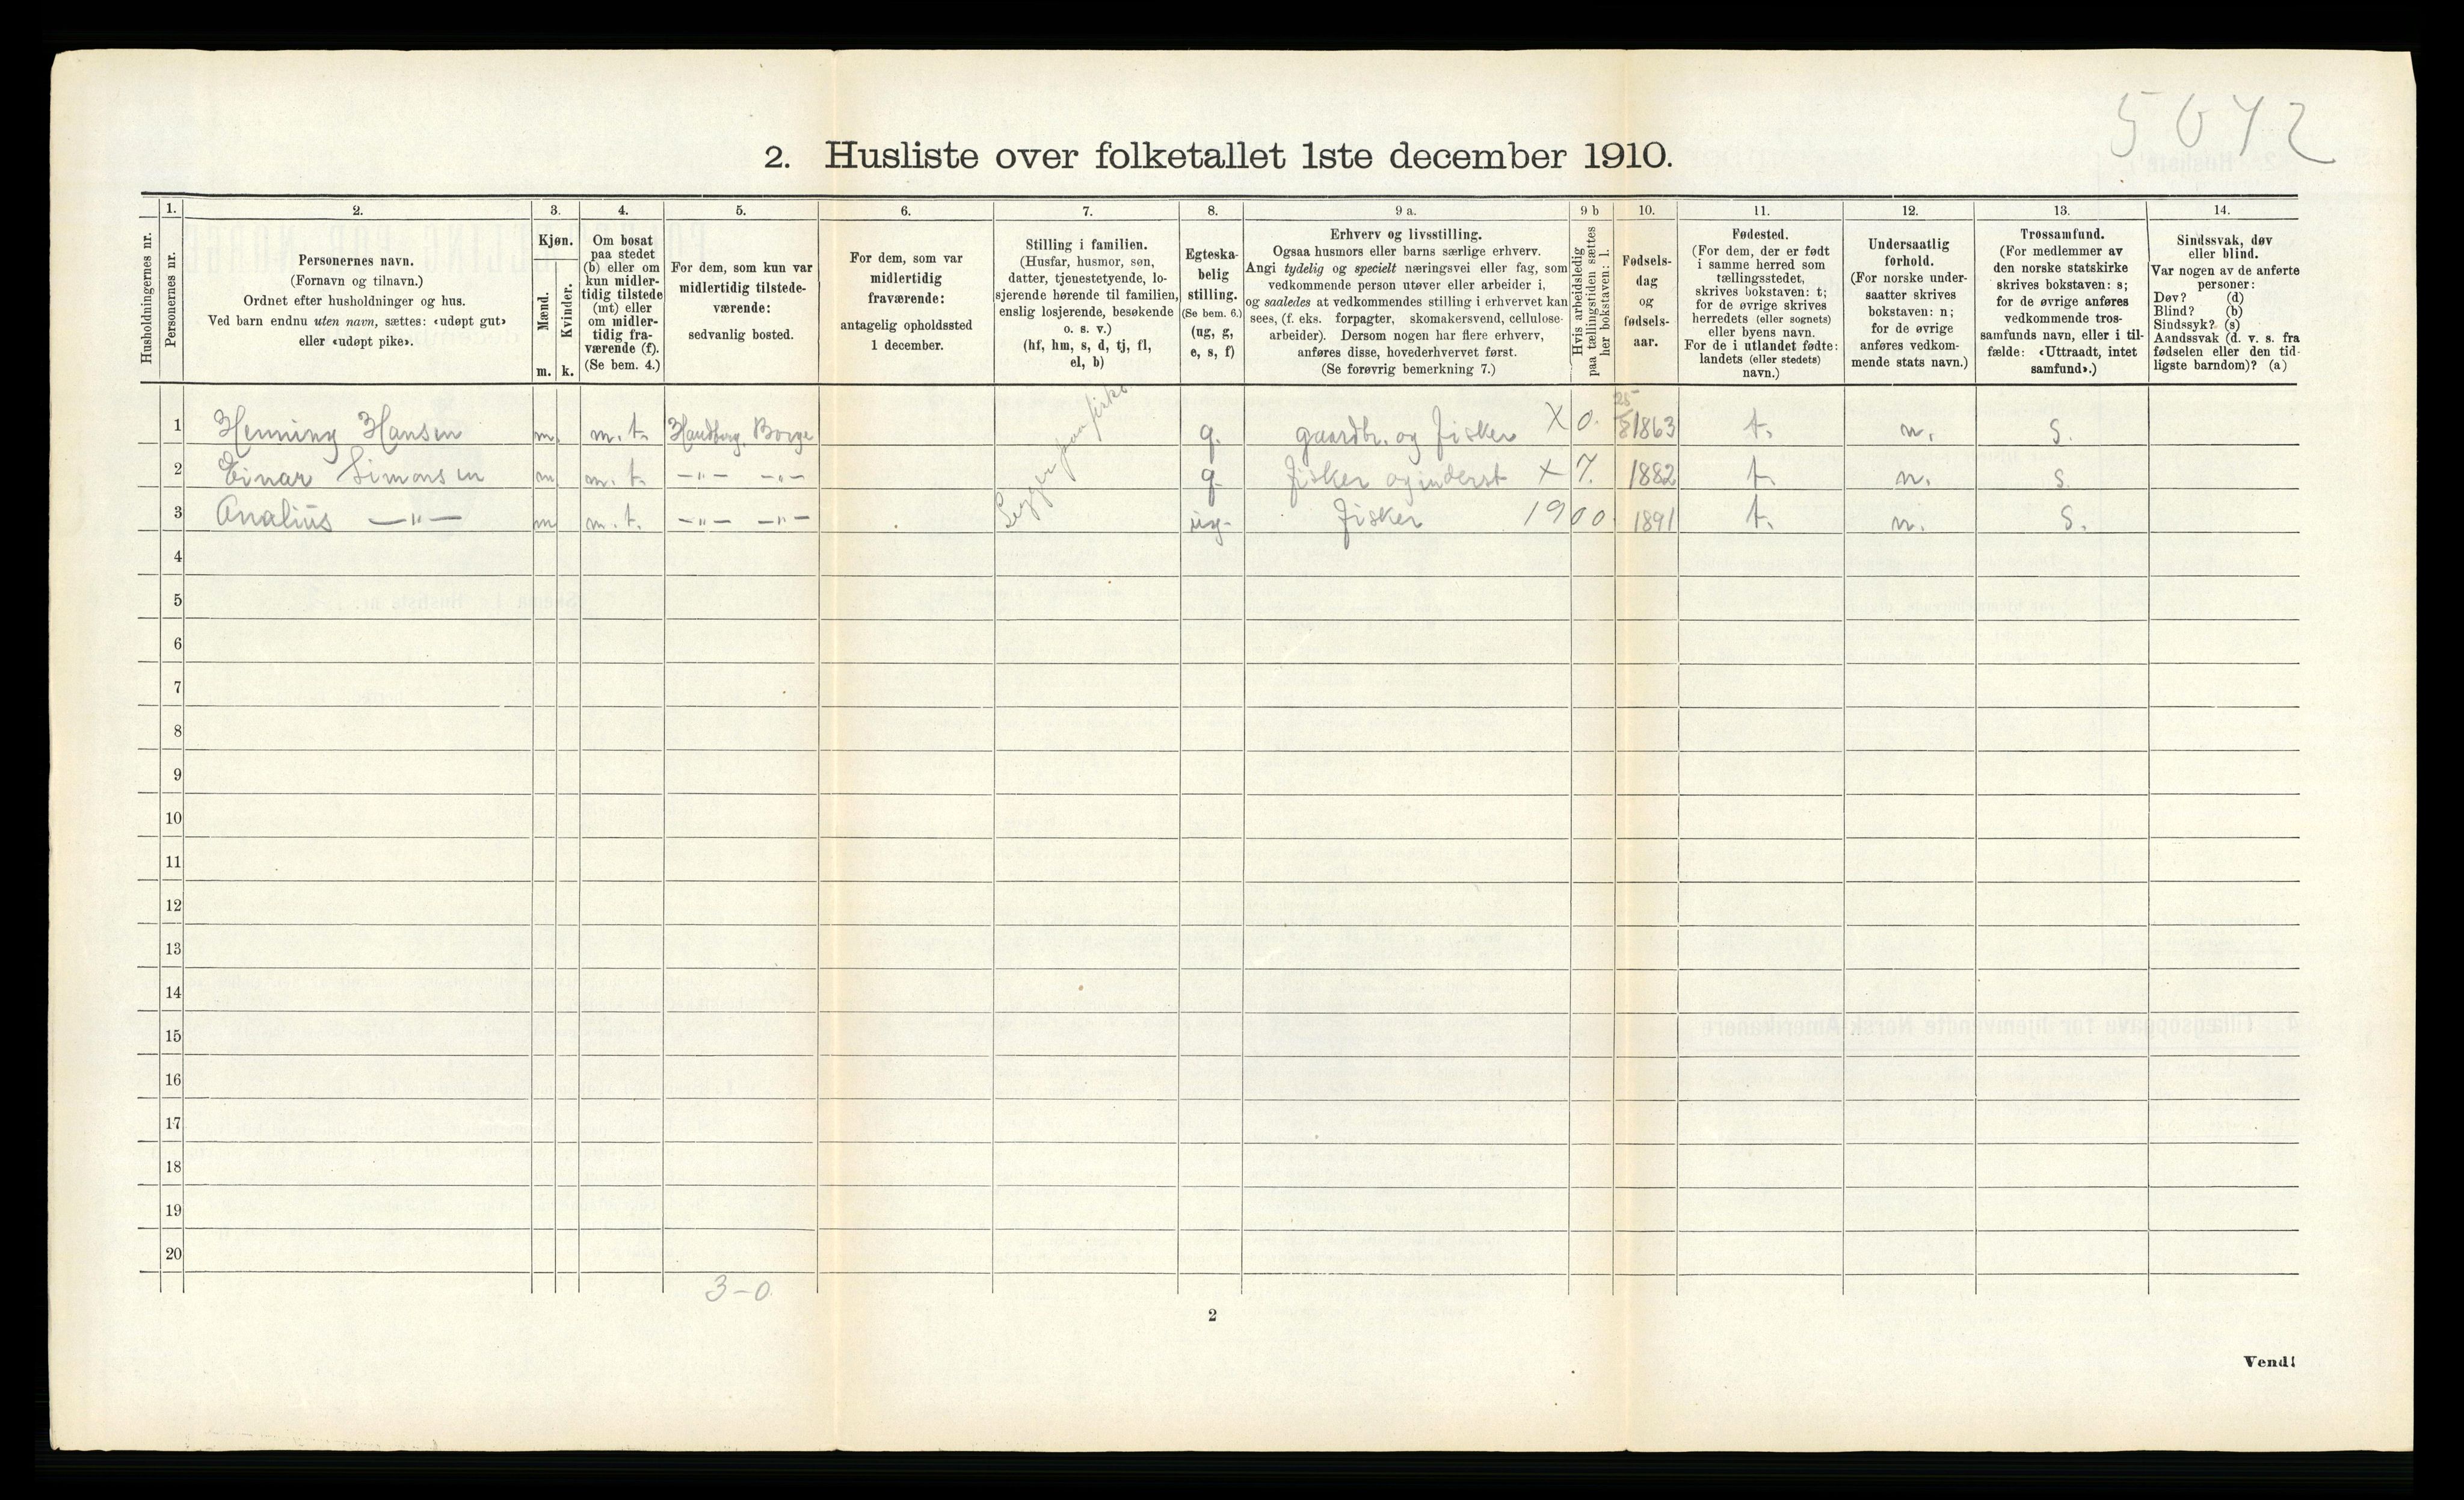 5642
2. Husliste over folketallet 1ste december 1910.
Husholdningernes nr.
1.
Personernes nr.
2.
Personernes navn.
(Fornavn og tilnavn.)
Ordnet efter husholdninger og hus.
Ved barn endnu uten navn, sættes: «udøpt gut»
eller «udøpt pike».
3.
Kjøn.
Mænd.
Kvinder.
m. k.
4.
Om bosat
paa stedet
(b) eller om
kun midler-
tidig tilstede
(mt) eller
om midler-
tidig fra-
værende (f).
(Se bem. 4.)
5.
For dem, som kun var
midlertidig tilstede-
værende:
sedvanlig bosted.
6.
For dem, som var
midlertidig
fraværende:
antagelig opholdssted
1 december.
7.
Stilling i familien.
(Husfar, husmor, søn,
datter, tjenestetyende, lo-
sjerende hørende til familien,
enslig losjerende, besøkende
o. s. v.)
(hf, hm, s, d, tj, fl,
el, b)
8.
Egteska-
belig
stilling.
(Se bem. 6.)
(ug, g,
e, s, f)
9 a.
Erhverv og livsstilling.
Ogsaa husmors eller barns særlige erhverv.
Angi tydelig og specielt næringsvei eller fag, som
vedkommende person utøver eller arbeider i,
og saaledes at vedkommendes stilling i erhvervet kan
sees, (f. eks. forpagter, skomakersvend, cellulose-
arbeider). Dersom nogen har flere erhverv,
anføres disse, hovederhvervet først.
(Se forøvrig bemerkning 7.)
9 b
Hvis arbeidsledig
paa tællingstiden sættes
her bokstaven: l.
10.
Fødsels-
dag
og
fødsels-
aar.
11.
Fødested.
(For dem, der er født
i samme herred som
tællingsstedet,
skrives bokstaven: t;
for de øvrige skrives
herredets (eller sognets)
eller byens navn.
For de i utlandet fødte:
landets (eller stedets)
navn.)
12.
Undersaatlig
forhold.
(For norske under-
saatter skrives
bokstaven: n;
for de øvrige
anføres vedkom-
mende stats navn.)
13.
Trossamfund.
(For medlemmer av
den norske statskirke
skrives bokstaven: s;
for de øvrige anføres
vedkommende tros-
samfunds navn, eller i til-
fælde: «Uttraadt, intet
samfund».)
14.
Sindssvak, døv
eller blind.
Var nogen av de anførte
personer:
Døv? (d)
Blind? (b)
Sindssyk? (s)
Aandssvak (d. v. s. fra
fødselen eller den tid-
ligste barndom)? (a)
Ligger paa fiske
1 Henning Hansen m. m. t. Borge g. gaardbr. og fisker X 0. 25/8 1863 t. n. s.
2 Einar Simonsen m m. t. —"— —"— g. fisker og inderst X 7. 1882 t. n. s.
3 Analius —"— m m. t. —"— —"— ug. fisker 1900 1891 t. n. s.
4
5
6
7
8
9
10
11
12
13
14
15
16
17
18
19
20
3-0
2
Vend!